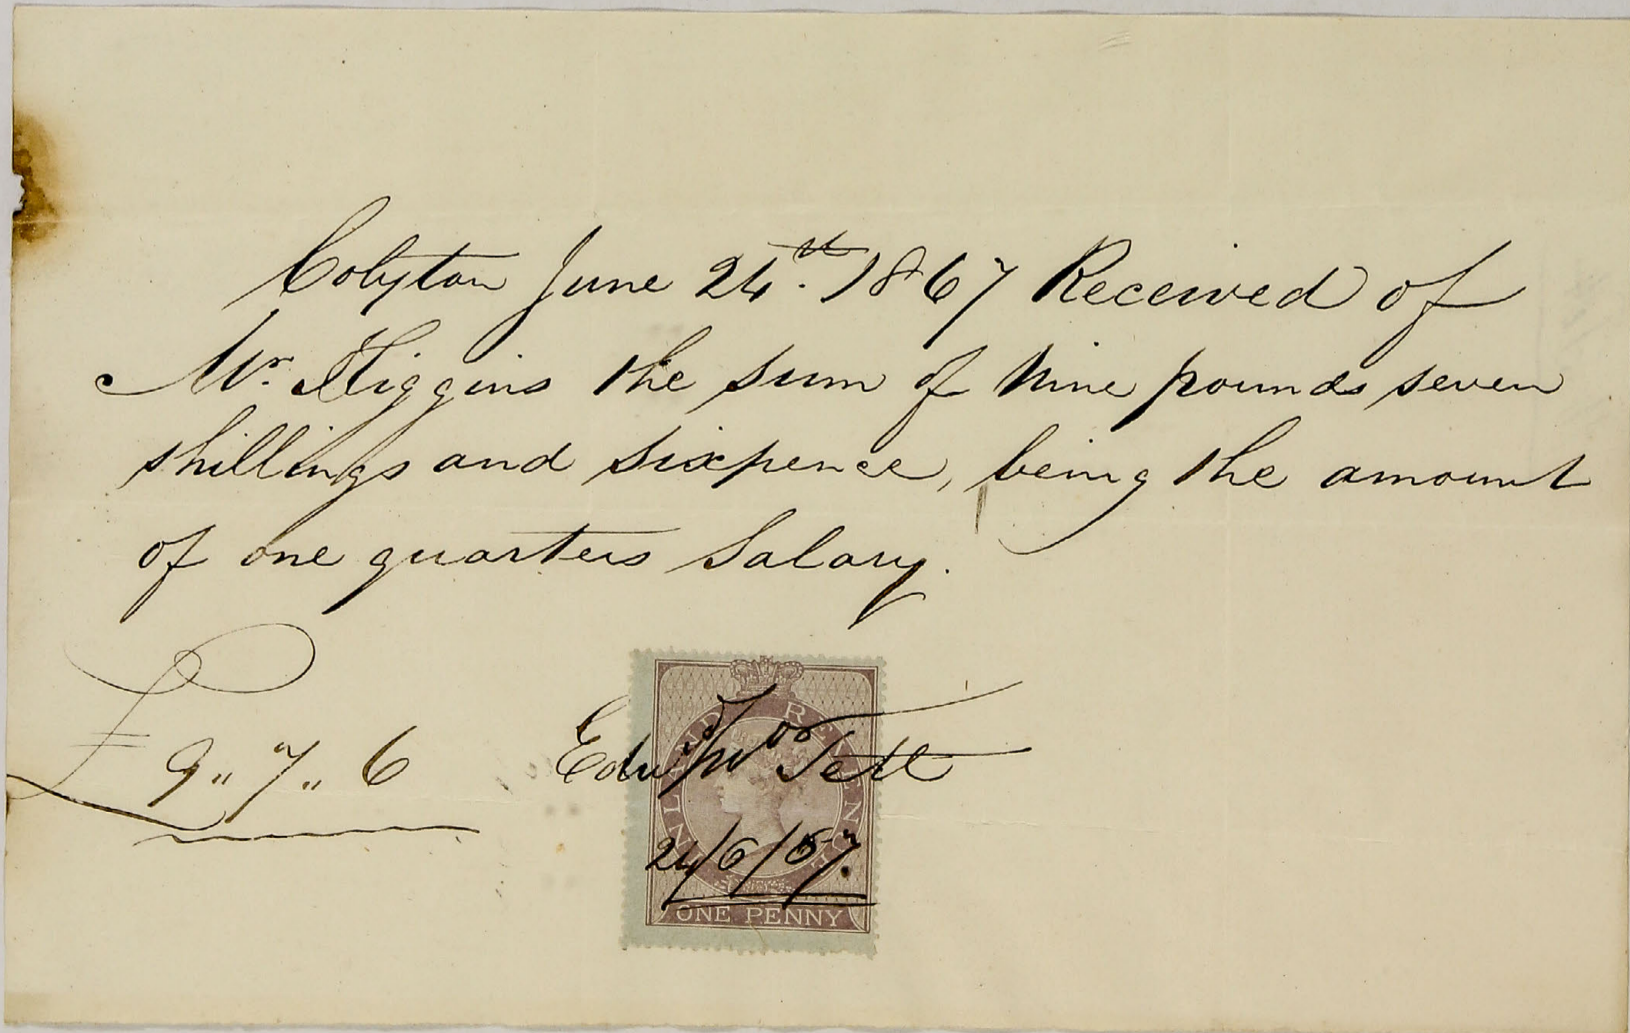 Colyton June 24th. 1867 Received of
Mr. Higgins the sum of Nine pounds seven
shillings and Sixpence, being the amount
of one quarters Salary.
£9 " 7 " 6
INLAND REVENUE
Tett
24/6/67.
ONE PENNY